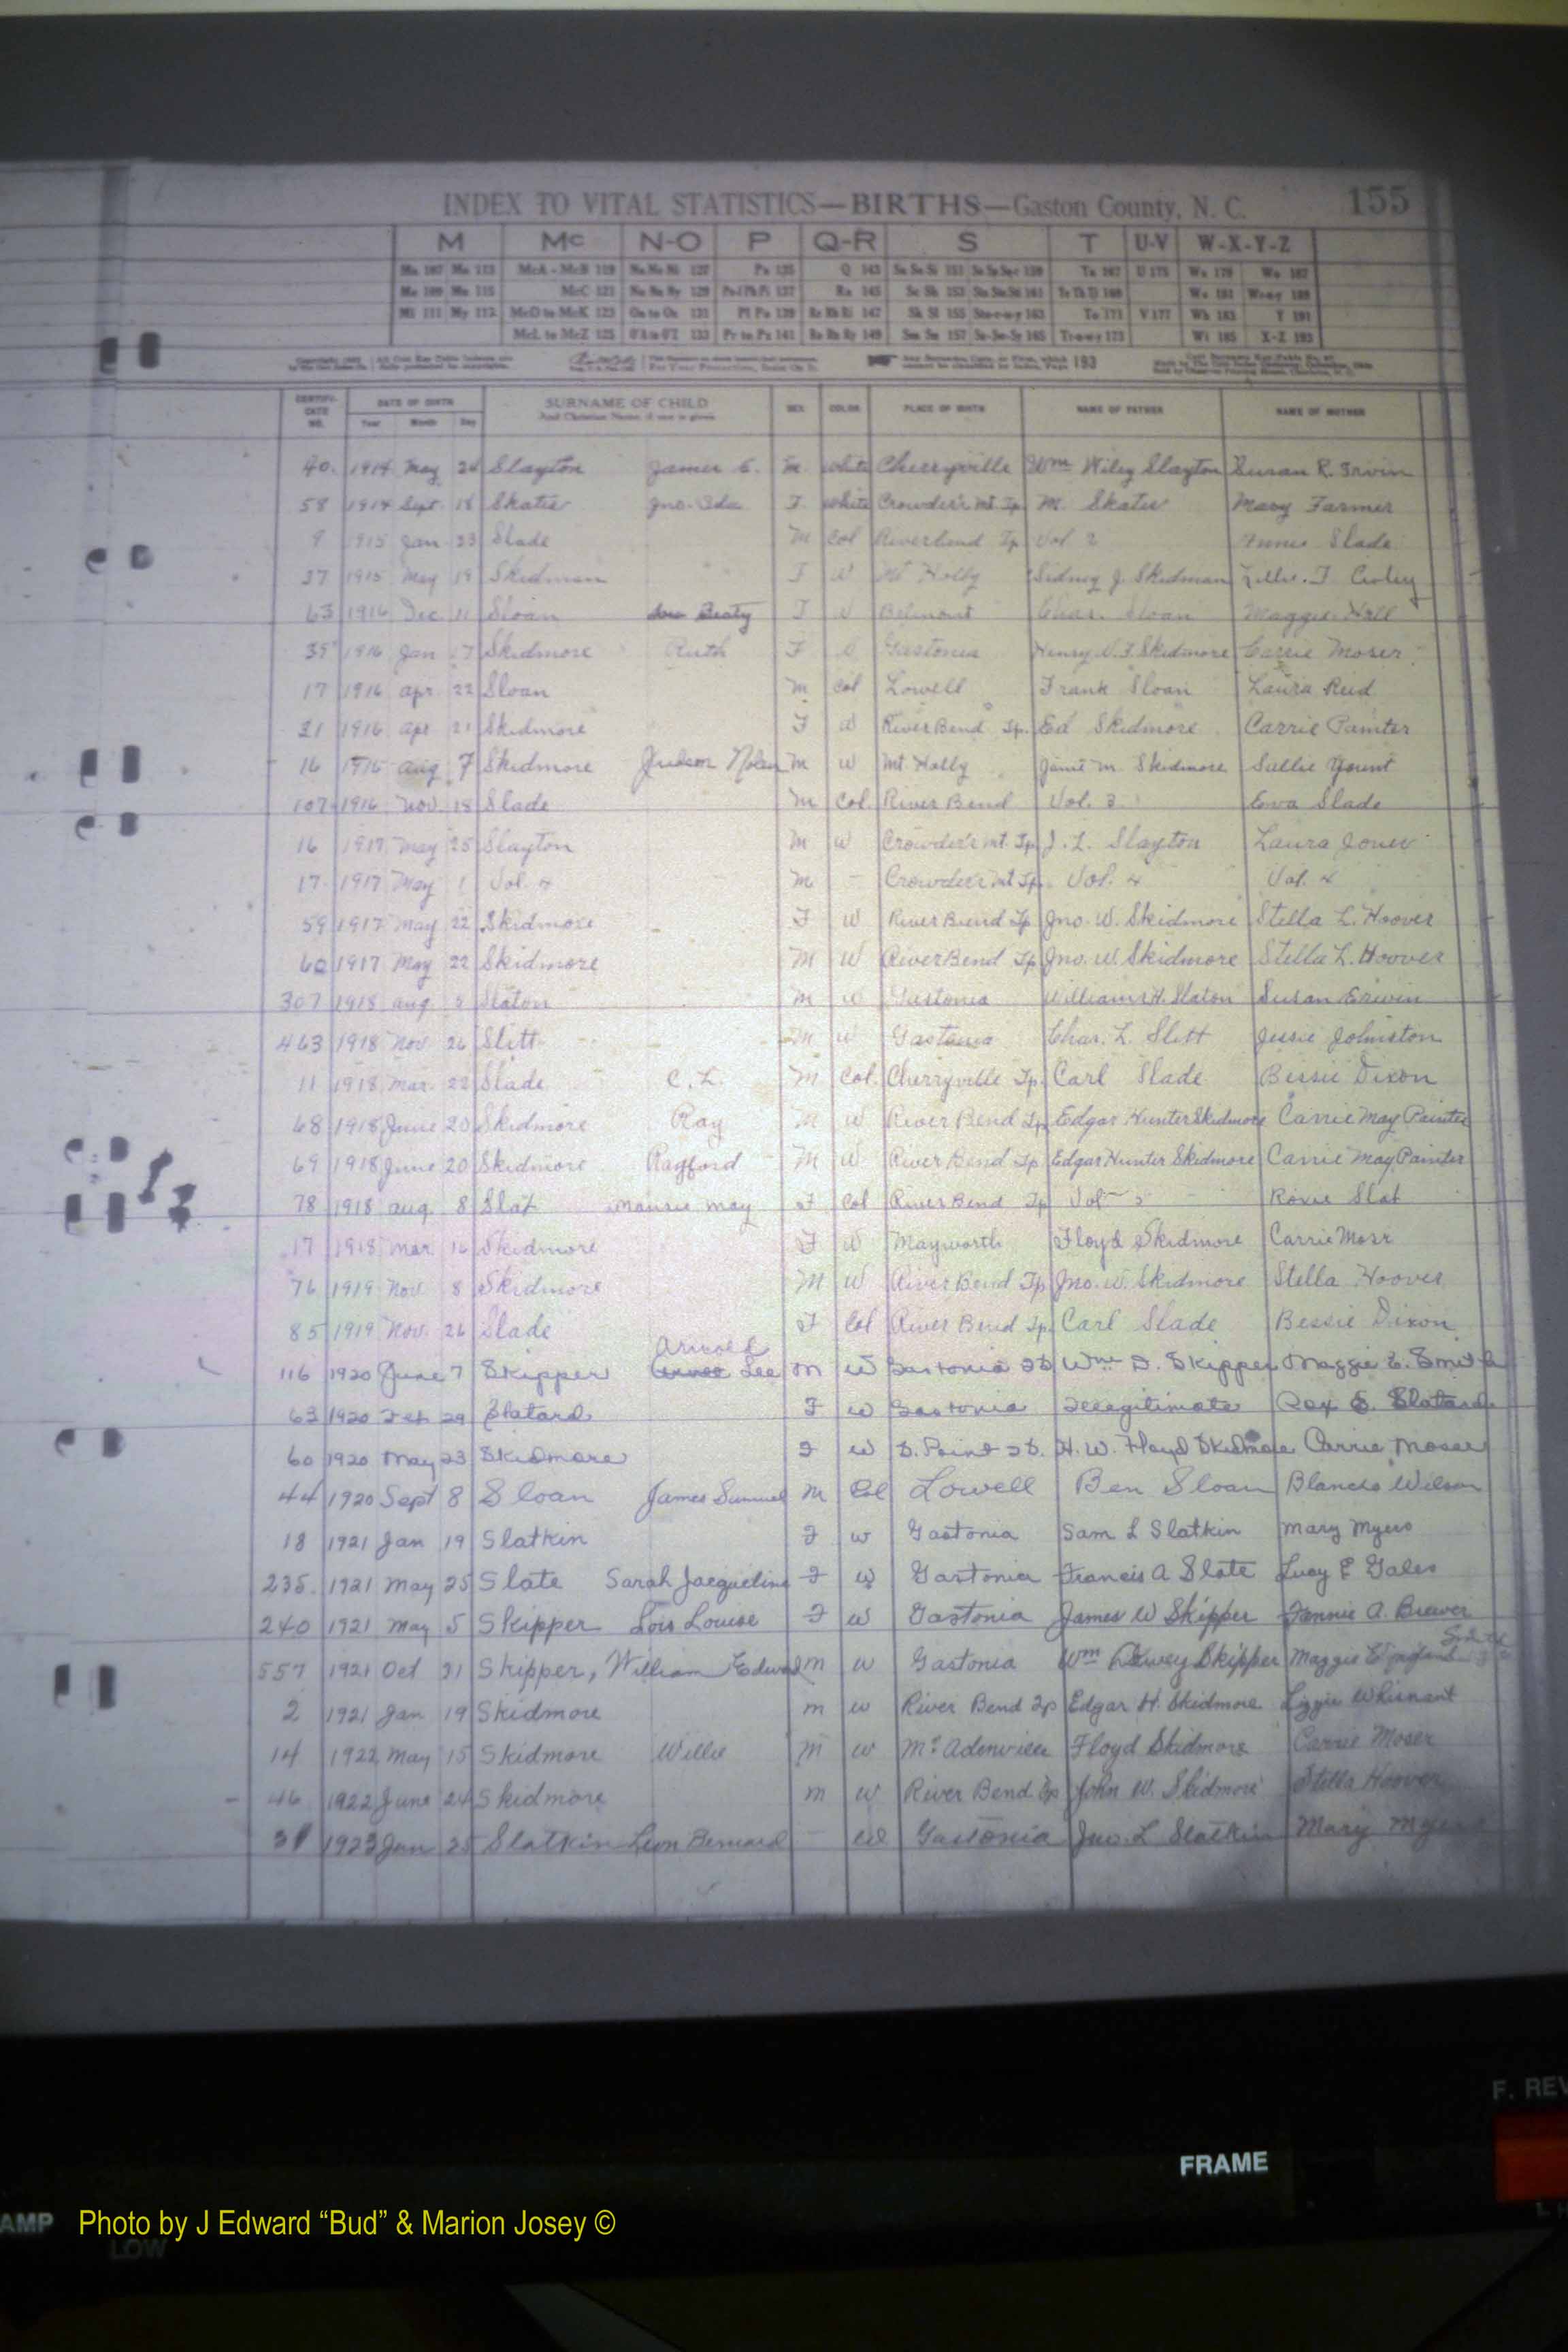 INDEX TO VITAL STATISTICS—BIRTHS—Gaston County, N. C. 155
M Mc N-O P Q-R S T U-V W-X-Y-Z
Ma 107 Mo 113 McA - McB 119 Na Ne Ni 127 Pa 135 Q 143 Sa Se Si 151 159 Ta 167 U 175 Wa 179 Wo 187
Me 109 Mu 115 McC 121 No Nu Ny 129 137 Ra 145 Sc Sh 153 161 Te Th Ti 169 We 181 189
Mi 111 My 117 McD to McK 123 Oa to On 131 Pl Po 139 Re Rh Ri 147 Sk Sl 155 163 To 171 V 177 Wh 183 Y 191
McL to McZ 125 133 Pr to Pz 141 Ro Ru Ry 149 Sm Sn 157 165 Tr-u-w-y 173 Wi 185 X-Z 193
193
CERTIFICATE NO. DATE OF BIRTH Year Month Day SURNAME OF CHILD And Christian Name, if one is given SEX COLOR PLACE OF BIRTH NAME OF FATHER NAME OF MOTHER
40. 1914 May 26 Slayton James E. M White Cherryville Wm Wiley Slayton Susan R. Irvin
58 1914 Sept 18 Skates Jno. Ida F White Crowder's Mt Tp. M. Skates Mary Farmer
9 1915 Jan 23 Slade M Col Riverbend Tp Vol 2 Slade
37 1915 May 19 Skidman F W Mt Holly Sidney J. Skidman
63 1916 Dec 11 Sloan Beaty F W Belmont Chas. Sloan Maggie Hall
35 1916 Jan 7 Skidmore Ruth F Gastonia Henry Skidmore Carrie Moser
17 1916 Apr 22 Sloan M Col Lowell Frank Sloan Laura Reid
21 1916 Apr 21 Skidmore F W River Bend Tp. Ed Skidmore Carrie Painter
16 1916 Aug 7 Skidmore Judson Nolen M W Mt. Holly M. Skidmore Sallie Yount
107 1916 Nov. 18 Slade M Col. River Bend Vol. 3 Eva Slade
16 1917 May 25 Slayton M W Crowder's Mt. Tp. J. L. Slayton Laura Jones
17. 1917 May 1 Vol. 4 M - Crowder's Mt Tp. Vol. 4 Vol. 4
59 1917 May 22 Skidmore F W River Bend Tp Jno. W. Skidmore Stella L. Hoover
60 1917 May 22 Skidmore M W River Bend Tp Jno. W Skidmore Stella L. Hoover
307 1918 Aug Slaton M W Gastonia William H. Slaton Susan Erwin
463 1918 Nov 26 Slitt M W Gastonia Chas. L. Slitt Jessie Johnston
11 1918 Mar. 22 Slade C. L. M Col. Cherryville Tp. Carl Slade Bessie Dixon
68 1918 June 20 Skidmore Ray M W River Bend Tp Edgar Hunter Skidmore Carrie May Painter
69 1918 June 20 Skidmore Rayford M W River Bend Tp Edgar Hunter Skidmore Carrie May Painter
78 1918 Aug. 8 Slat May F Col River Bend Tp Vol Roxie Slat
17 1918 Mar. 16 Skidmore F W Mayworth Floyd Skidmore Carrie Mosr
76 1919 Nov 8 Skidmore M W River Bend Tp Jno. W. Skidmore Stella Hoover
85 1919 Nov. 26 Slade F Col River Bend Tp. Carl Slade Bessie Dixon
Arnold
116 1920 June 7 Skipper Lee M W Gastonia Wm D. Skipper Maggie E. Smith
63 1920 Feb 29 Slatard F W Gastonia Illegitimate Slatard
60 1920 May 23 Skidmore F W S. Point H. W. Floyd Skidmore Carrie Moser
44 1920 Sept 8 Sloan James Samuel M Col Lowell Ben Sloan Blanche Wilson
18 1921 Jan 19 Slatkin F W Gastonia Sam L Slatkin Mary Myers
235. 1921 May 25 Slate Sarah Jacqueline F W Gastonia Francis A Slate Lucy E Gales
240 1921 May 5 Skipper Lois Louise F W Gastonia James W Skipper Fannie A. Brewer
557 1921 Oct 31 Skipper, William Edward M W Gastonia Wm Dewey Skipper Maggie E Smith
2 1921 Jan 19 Skidmore M W River Bend Tp Edgar H. Skidmore Lizzie Whisnant
14 1922 May 15 Skidmore Willie M W McAdenville Floyd Skidmore Carrie Moser
46 1922 June 24 Skidmore M W River Bend Tp John W. Skidmore Stella Hoover
31 1923 Jan 25 Slatkin Leon Bernard - W Gastonia Jno. L Slatkin Mary Myers
F. REV
FRAME
AMP
LOW
Photo by J Edward “Bud” & Marion Josey ©